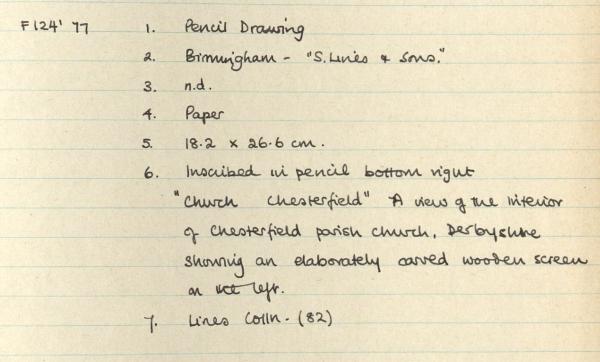 F124' 77 1. Pencil Drawing
2. Birmingham - "S. Lines & Sons."
3. n.d.
4. Paper
5. 18.2 x 26.6 cm.
6. Inscribed in pencil bottom right
"Church Chesterfield" A view of the interior
of Chesterfield parish church, Derbyshire
showing an elaborately carved wooden screen
on the left.
7. Lines Colln. (82)